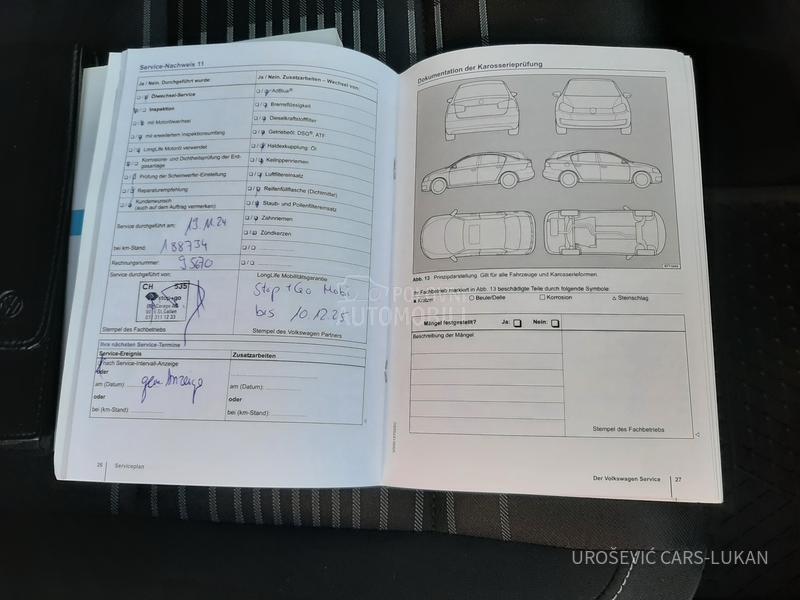 Service-Nachweis 11
Ja / Nein. Durchgeführt wurde:
Ölwechsel-Service
Inspektion
mit Motorölwechsel
mit erweitertem Inspektionsumfang
LongLife Motoröl verwendet
Korrosions- und Dichtheitsprüfung der Erd-
gasanlage
Prüfung der Scheinwerfer-Einstellung
Reparaturempfehlung
Kundenwunsch
(auch auf dem Auftrag vermerken)
Service durchgeführt am: 19.11.24
bei km-Stand: 188734
Rechnungsnummer: 95670
Service durchgeführt von:
CH 535
stop+go
Stempel des Fachbetriebs
Ja / Nein. Zusatzarbeiten – Wechsel von:
AdBlue®
Bremsflüssigkeit
Dieselkraftstofffilter
Getriebeöl: DSG®, ATF
Haldexkupplung: Öl
Keilrippenriemen
Luftfiltereinsatz
Reifenfüllflasche (Dichtmittel)
Staub- und Pollenfiltereinsatz
Zahnriemen
Zündkerzen
LongLife Mobilitätsgarantie
Stop + Go Mobi
bis 10.12.25
Stempel des Volkswagen Partners
Ihre nächsten Service-Termine
Service-Ereignis
Zusatzarbeiten
nach Service-Intervall-Anzeige
oder
am (Datum)
gem Anzeige
oder
bei (km-Stand)
am (Datum):
oder
bei (km-Stand):
26 Serviceplan
Dokumentation der Karosserieprüfung
Abb. 13 Prinzipdarstellung. Gilt für alle Fahrzeuge und Karosserieformen.
Fachbetrieb markiert in Abb. 13 beschädigte Teile durch folgende Symbole:
Kratzer
Beule/Delle
Korrosion
Steinschlag
Mängel festgestellt? Ja: Nein:
Beschreibung der Mängel:
Stempel des Fachbetriebs
Der Volkswagen Service 27
POLOVNI
AUTOMOBILI
UROŠEVIĆ CARS-LUKAN